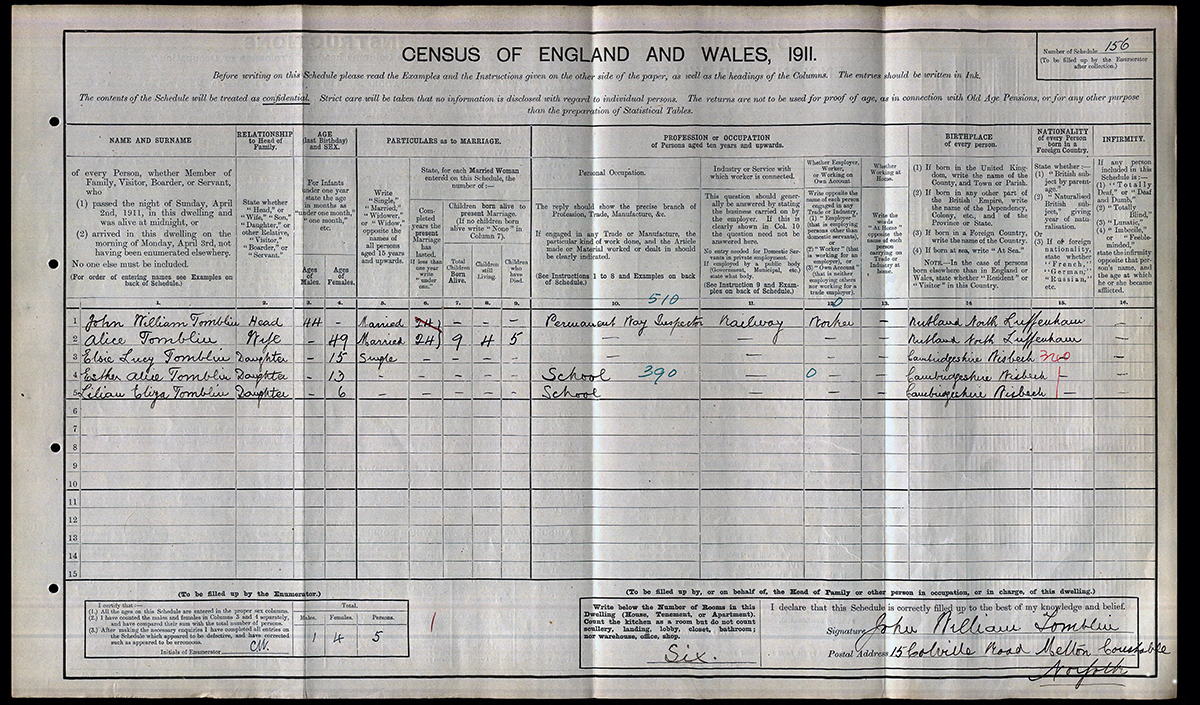 Number of Schedule 156
(To be filled up by the Enumerator
after collection.)
CENSUS OF ENGLAND AND WALES, 1911.
Before writing on this Schedule please read the Examples and the Instructions given on the other side of the paper, as well as the headings of the Columns. The entries should be written in Ink.
The contents of the Schedule will be treated as confidential. Strict care will be taken that no information is disclosed with regard to individual persons. The returns are not to be used for proof of age, as in connection with Old Age Pensions, or for any other purpose
than the preparation of Statistical Tables.
NAME AND SURNAME
of every Person, whether Member of
Family, Visitor, Boarder, or Servant,
who
(1) passed the night of Sunday, April
2nd, 1911, in this dwelling and
was alive at midnight, or
(2) arrived in this dwelling on the
morning of Monday, April 3rd, not
having been enumerated elsewhere.
No one else must be included.
(For order of entering names see Examples on
back of Schedule.)
1.
RELATIONSHIP
to Head of
Family.
State whether
"Head," or
"Wife," "Son,"
"Daughter," or
other Relative,
"Visitor,"
"Boarder," or
"Servant."
2.
AGE
(last Birthday)
and SEX.
For Infants
under one year
state the age
in months as
"under one month,"
"one month,"
etc.
Ages
of
Males.
3.
Ages
of
Females.
4.
PARTICULARS as to MARRIAGE.
Write
"Single,"
"Married,"
"Widower,"
or "Widow,"
opposite the
names of
all persons
aged 15 years
and upwards.
5.
State, for each Married Woman
entered on this Schedule, the
number of:—
Completed
years the
present
Marriage
has
lasted.
If less than
one year
write
"under
one."
6.
Children born alive to
present Marriage.
(If no children born
alive write "None" in
Column 7).
Total
Children
Born
Alive.
7.
Children
still
Living.
8.
Children
who
have
Died.
9.
PROFESSION or OCCUPATION
of Persons aged ten years and upwards.
Personal Occupation.
The reply should show the precise branch of
Profession, Trade, Manufacture, &c.
If engaged in any Trade or Manufacture, the
particular kind of work done, and the Article
made or Material worked or dealt in should
be clearly indicated.
(See Instructions 1 to 8 and Examples on back
of Schedule.)
10. 510
Industry or Service with
which worker is connected.
This question should generally
be answered by stating
the business carried on by
the employer. If this is
clearly shown in Col. 10
the question need not be
answered here.
No entry needed for Domestic Servants
in private employment.
If employed by a public body
(Government, Municipal, etc.)
state what body.
(See Instruction 9 and Examples
on back of Schedule.)
11.
Whether Employer,
Worker,
or Working on
Own Account.
Write opposite the
name of each person
engaged in any
Trade or Industry,
(1) "Employer"
(that is employing
persons other than
domestic servants),
or
(2) "Worker" (that
is working for an
employer), or
(3) "Own Account"
(that is neither
employing others
nor working for a
trade employer).
12. 0
Whether
Working at
Home.
Write the
words
"At Home"
opposite the
name of each
person
carrying on
Trade or
Industry at
home.
13.
BIRTHPLACE
of every person.
(1) If born in the United Kingdom,
write the name of the
County, and Town or Parish.
(2) If born in any other part of
the British Empire, write
the name of the Dependency,
Colony, etc., and of the
Province or State.
(3) If born in a Foreign Country,
write the name of the Country.
(4) If born at sea, write "At Sea."
NOTE.—In the case of persons
born elsewhere than in England or
Wales, state whether "Resident" or
"Visitor" in this Country.
14.
NATIONALITY
of every Person
born in a
Foreign Country.
State whether:—
(1) "British subject
by parentage,"
(2) "Naturalised
British subject,"
giving
year of naturalisation.
Or
(3) If of foreign
nationality,
state whether
"French,"
"German,"
"Russian,"
etc.
15.
INFIRMITY.
If any person
included in this
Schedule is:—
(1) "Totally
Deaf," or "Deaf
and Dumb,"
(2) "Totally
Blind,"
(3) "Lunatic,"
(4) "Imbecile,"
or "Feeble-minded,"
state the infirmity
opposite that person's
name, and
the age at which
he or she became
afflicted.
16.
1 John William Tomblin Head 44 – Married 24 – – – Permanent Way Inspector Railway Worker – Rutland North Luffenham
2 Alice Tomblin Wife – 49 Married 24 9 4 5 – – – – Rutland North Luffenham
3 Elsie Lucy Tomblin Daughter – 15 Single – – – – Cambridgeshire Wisbech
4 Esther Alice Tomblin Daughter – 13 School 390 – 0 – Cambridgeshire Wisbech
5 Lilian Eliza Tomblin Daughter – 6 School – – – Cambridgeshire Wisbech
6
7
8
9
10
11
12
13
14
15
(To be filled up by the Enumerator.)
I certify that:—
(1.) All the ages on this Schedule are entered in the proper sex columns.
(2.) I have counted the males and females in Columns 3 and 4 separately,
and have compared their sum with the total number of persons.
(3.) After making the necessary enquiries I have completed all entries on
the Schedule which appeared to be defective, and have corrected
such as appeared to be erroneous.
Initials of Enumerator
Total.
Males. Females. Persons.
1 4 5
(To be filled up by, or on behalf of, the Head of Family or other person in occupation, or in charge, of this dwelling.)
Write below the Number of Rooms in this
Dwelling (House, Tenement, or Apartment).
Count the kitchen as a room but do not count
scullery, landing, lobby, closet, bathroom;
nor warehouse, office, shop.
Six.
I declare that this Schedule is correctly filled up to the best of my knowledge and belief.
Signature John William Tomblin
Postal Address 15 Colville Road Melton Constable
Norfolk